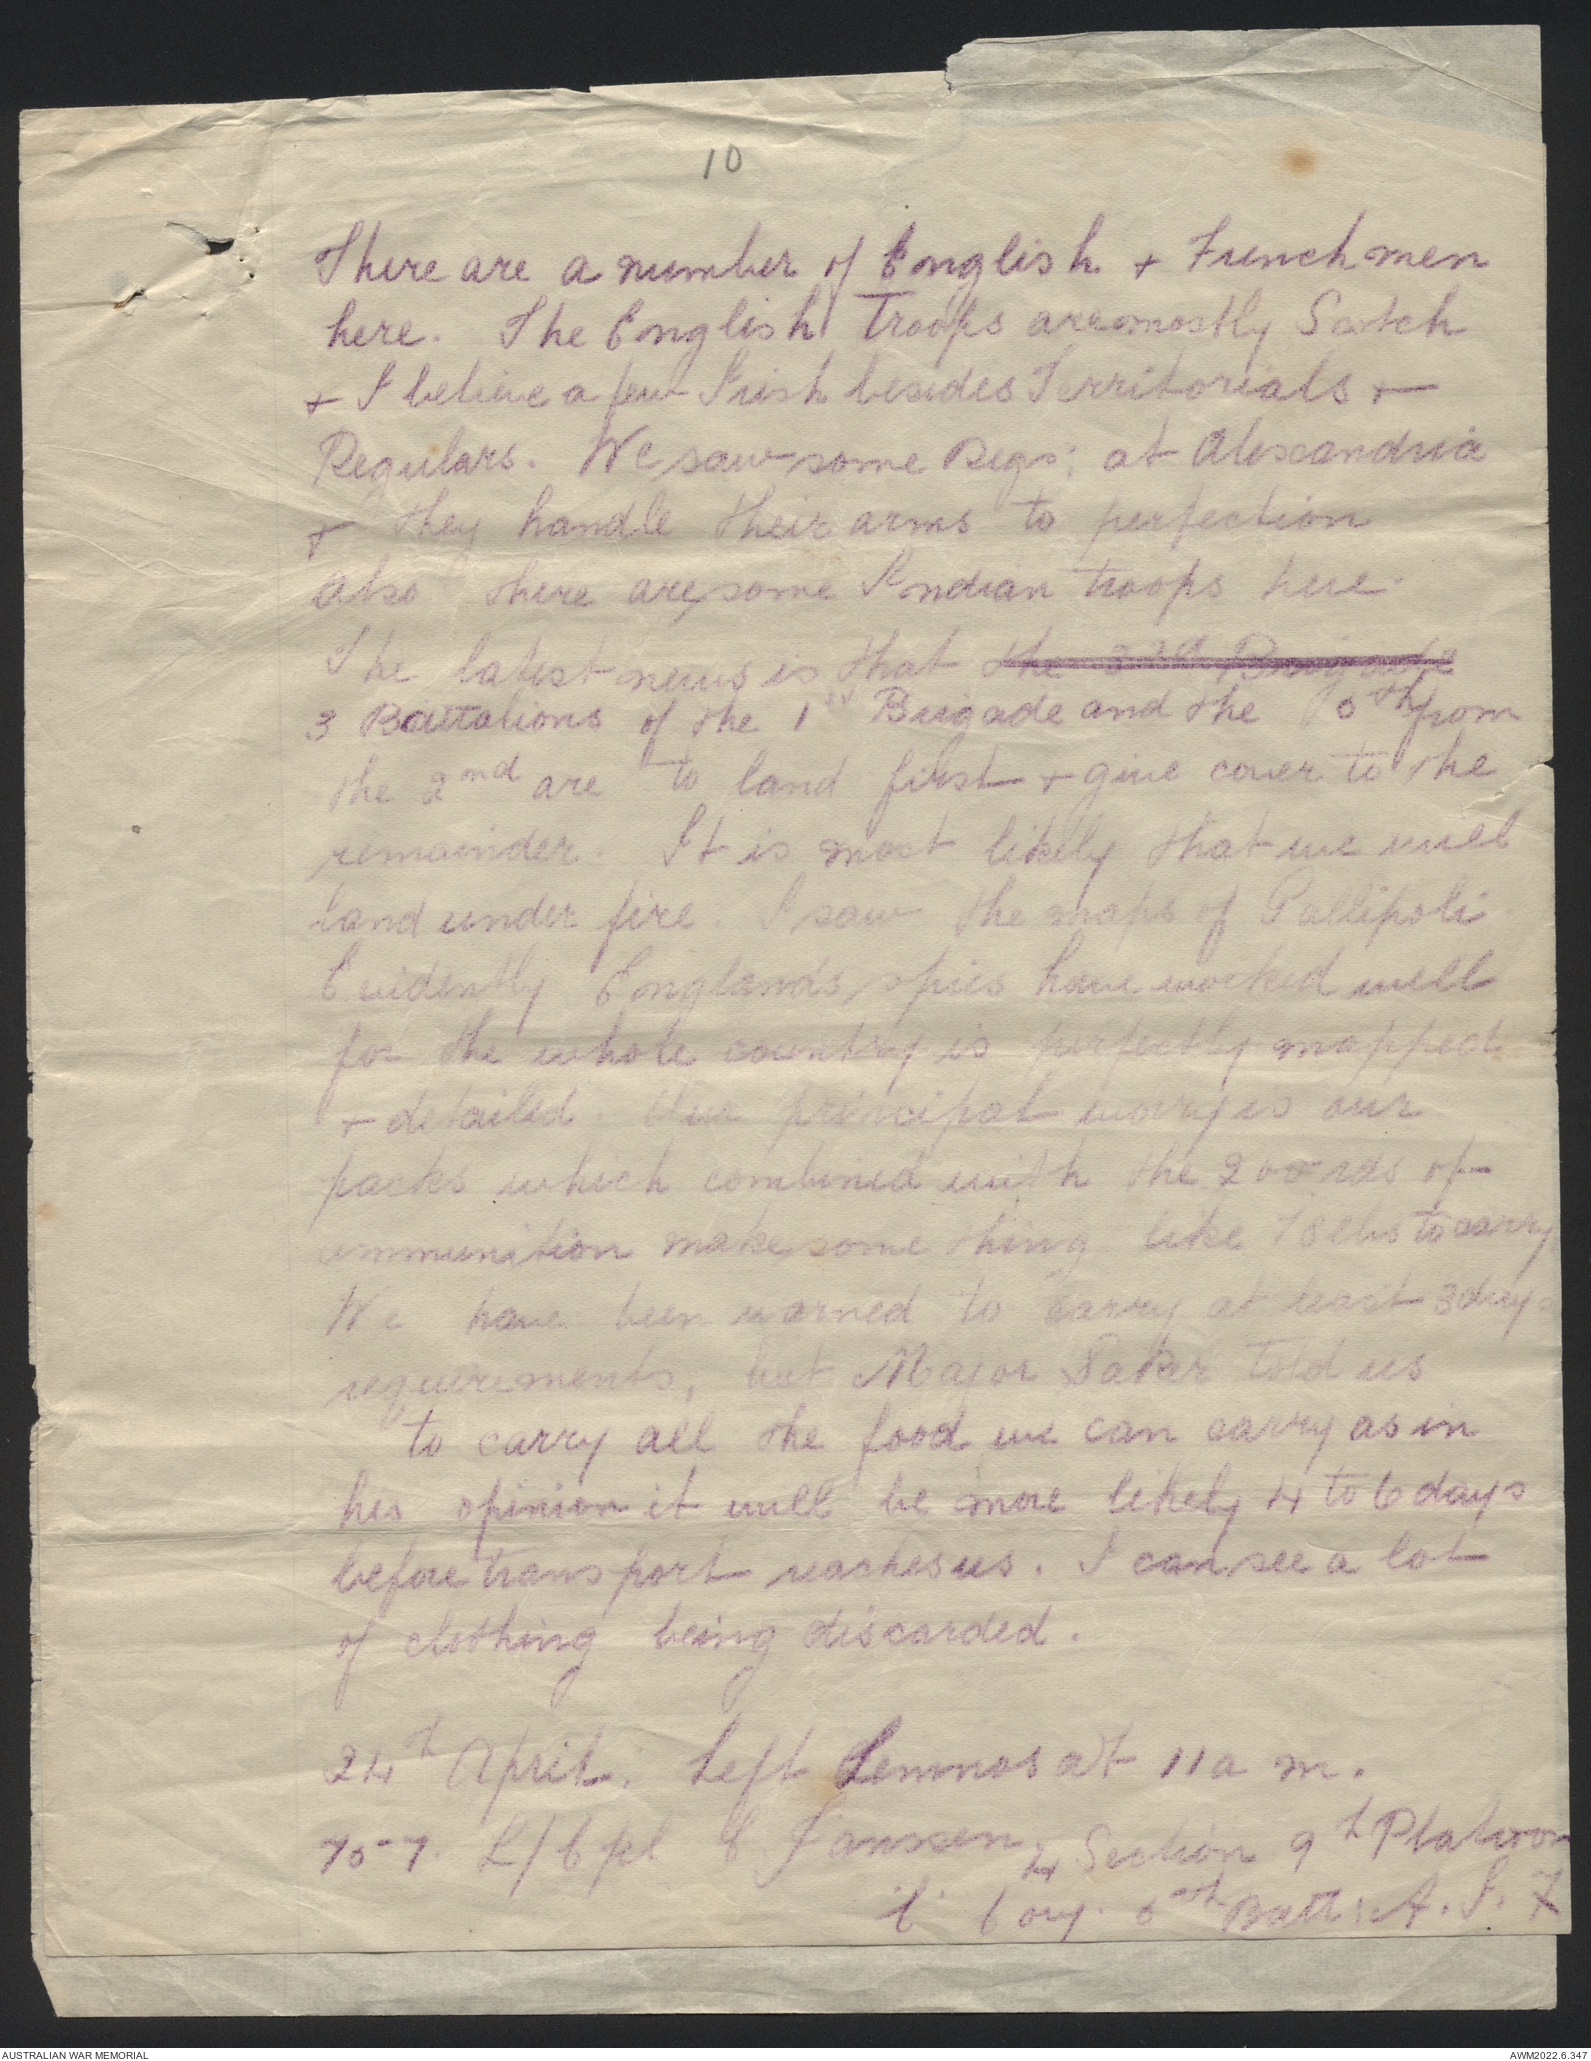 10
There are a number of English + Frenchmen
here. The English Troops are mostly Scotch
+ I believe a few Irish besides Territorials +
Regulars. We saw some Regs; at Alexandria
+ they handle their arms to perfection
also there are some Indian troops here.
The latest news is that the 3rd Brigade
3 Battalions of the 1st Brigade and the 5th from
the 2nd are to land first + give cover to the
remainder. It is most likely that we will
land under fire I saw the maps of Gallipoli.
Evidently Englands spies have worked well
for the whole country is perfectly mapped
+ detailed. Our principal worry is our
packs which combined with the 200 rds of
ammunition make some thing like 78lbs to carry
We have been warned to carry at least 3 days
requirements, but Major Saker told us
to carry all the food we can carry as in
his opinion it will be more likely 4 to 6 days
before transport reaches us. I can see a lot
of clothing being discarded.
24th April. Left Lemnos at 11 a m.
757. L/Cpl E. Janssen 4 Section 9th Platoon
C Coy. 5th Batt: A. I. F
AUSTRALIAN WAR MEMORIAL
AWM2022.6.347